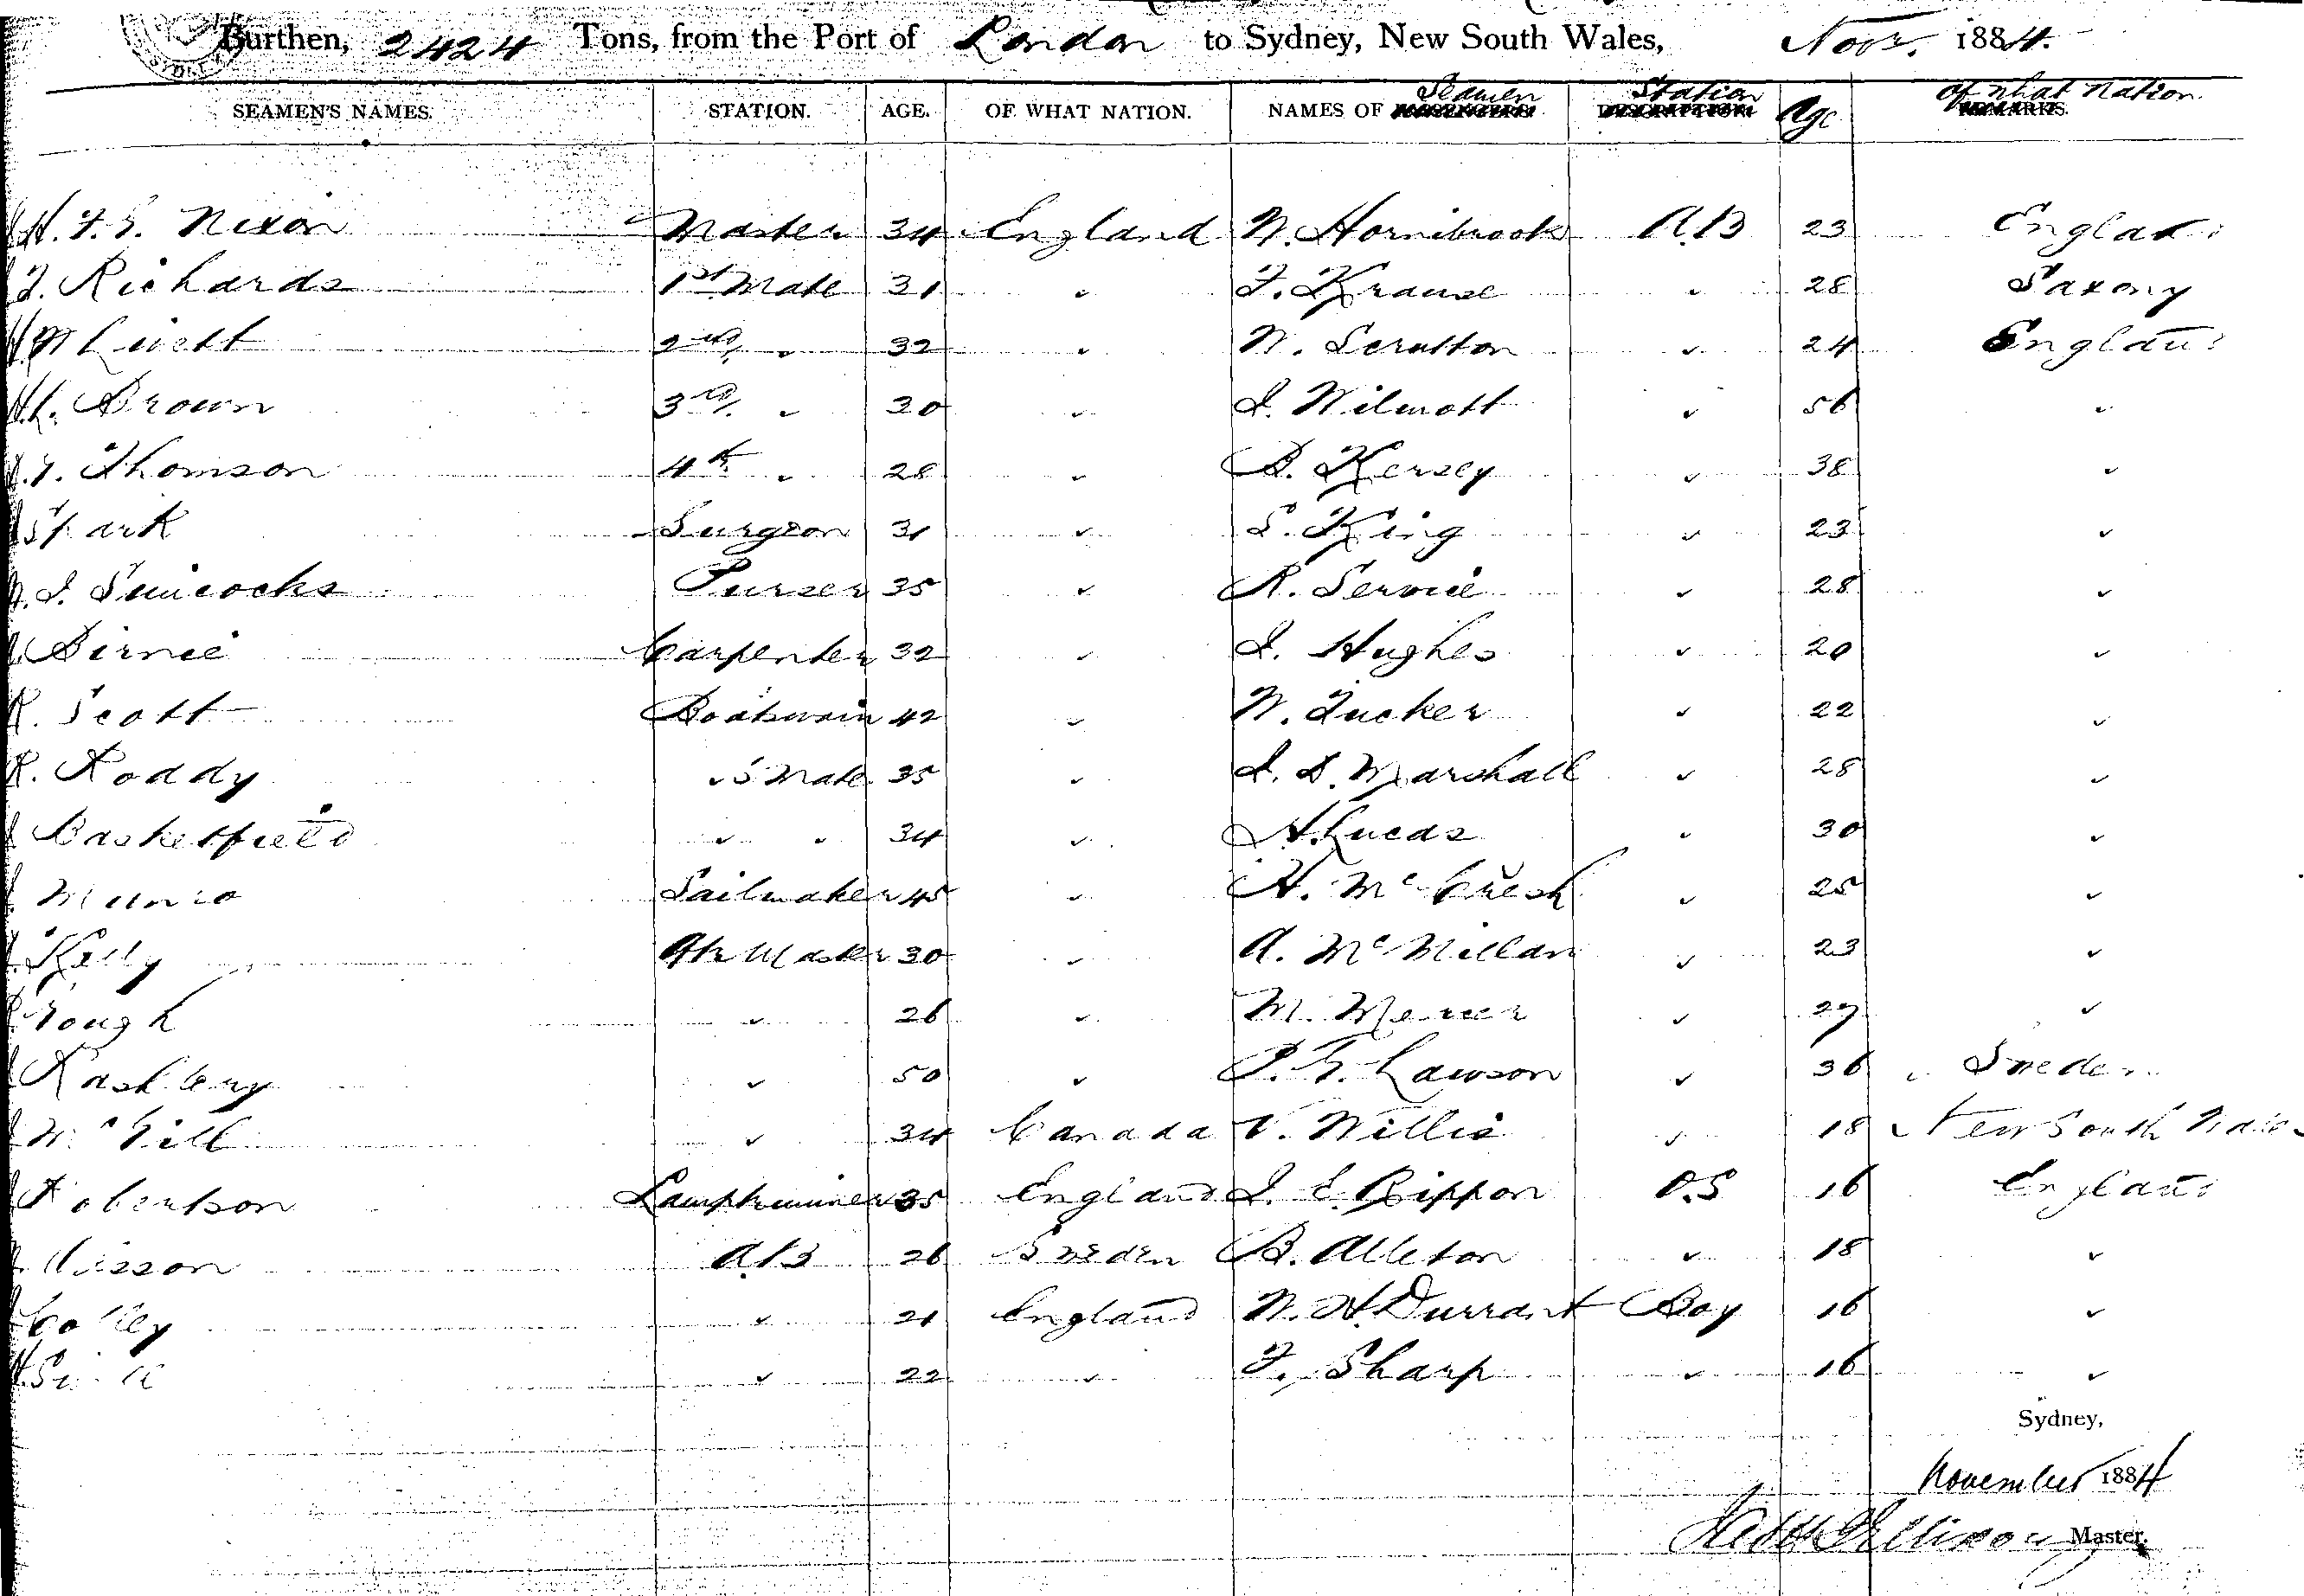 Burthen, 2424 Tons, from the Port of London to Sydney, New South Wales, Novr. 1884.
SEAMEN'S NAMES. STATION. AGE. OF WHAT NATION. NAMES OF Seamen Station Age of what Nation.
Nixon Master 34 England W. Hornibrook A.B 23 England
Richards 1st Mate 31 " F. Krause " 28 Saxony
2nd " 32 " W. Scrutton " 24 England
Brown 3rd " 30 " J. Wilmott " 56 "
Thomson 4th " 28 " D. Kersey " 38 "
Surgeon 31 " S. King " 23 "
Purser 35 " R. Service " 28 "
Birnie Carpenter 32 " J. Hughes " 20 "
R. Scott Boatswain 42 " W. Tucker " 22 "
R. Roddy "s Mate 35 " J. S. Marshall " 28 "
Basketfield " " 34 " A. Lucas " 30 "
Munro Sailmaker 45 " H. Mc " 25 "
Kelly Qr Master 30 " A. McMillan " 23 "
" 26 " M. Mercer " 27 "
" 50 " P. G. Lawson " 36 Sweden
McGill " 34 Canada V. Willis " 18 New South Wales
Robertson Lamptrimmer 35 England J. E. Rippon O.S 16 England
A.B 26 Sweden B. Alleton " 18 "
" 21 England W. H. Durrant Boy 16 "
" 22 " F. Sharp " 16 "
Sydney,
November 1884
Master.